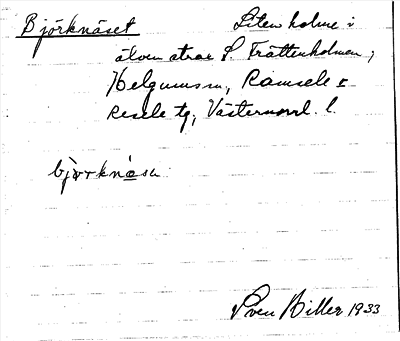 Björknäset Liten holme i
älven strax S. Trättenholmen,
Helgumsn, Ramsele o
Resele tg, Västernorrl. l.
bjørknæsa
Sven Biller 1933